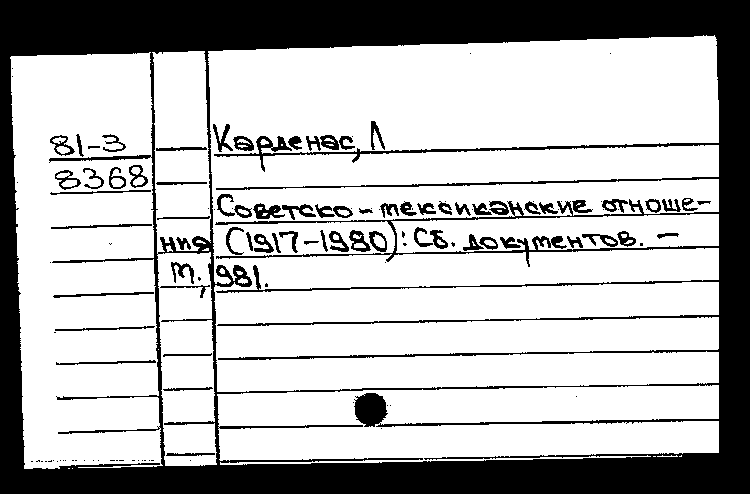 81-3 Карденас, Л
8368
Советско-мексиканские отноше-
ния (1917-1980): Сб. документов. –
М., 1981.